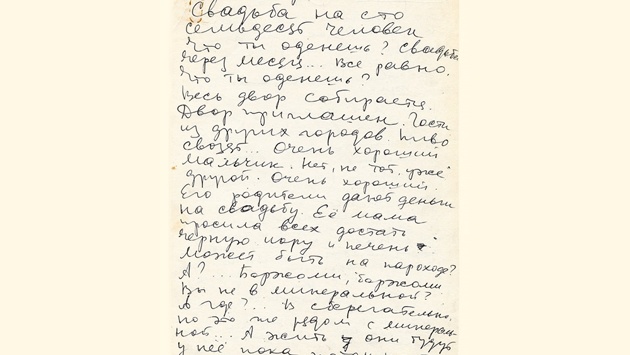 Свадьба на сто
семьдесят человек
Что ты оденешь? Свадьба
через месяц... Всё равно.
Что ты оденешь?
Весь двор собирается.
Двор приглашён. Гости
из других городов. Пиво
свозят... Очень хороший
мальчик. Нет, не тот, уже
другой. Очень хороший.
Его родители дают деньги
на свадьбу. Её мама
просила всех достать
чёрную икру и печень.
Может быть на пароходе?
А?... Боржоми, боржоми
Вы не в минеральной?
А где?... В сберегательной.
но это же рядом с минераль-
ной... А жить они будут
у неё пока